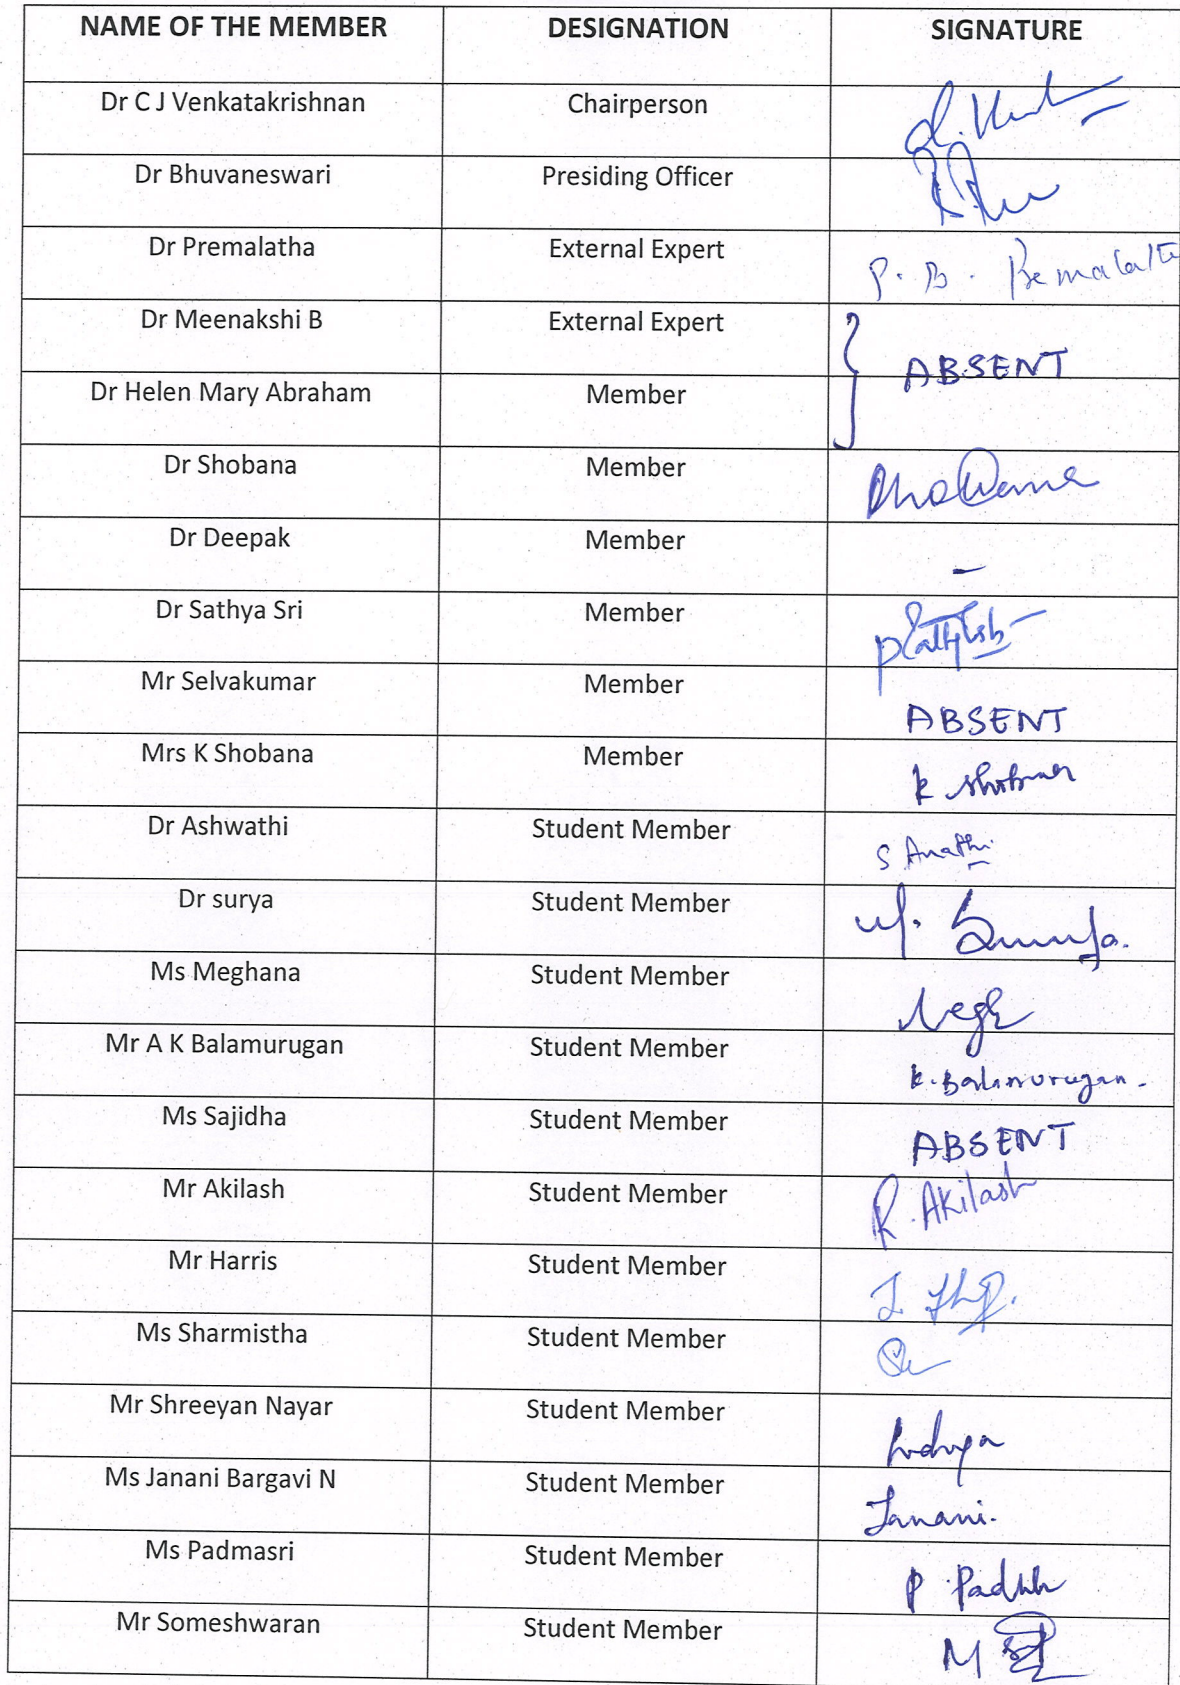 NAME OF THE MEMBER DESIGNATION SIGNATURE
Dr C J Venkatakrishnan Chairperson
Dr Bhuvaneswari Presiding Officer
Dr Premalatha External Expert P. B.
Dr Meenakshi B External Expert
ABSENT
Dr Helen Mary Abraham Member
Dr Shobana Member
Dr Deepak Member -
Dr Sathya Sri Member
Mr Selvakumar Member ABSENT
Mrs K Shobana Member k
Dr Ashwathi Student Member S
Dr surya Student Member
Ms Meghana Student Member
Mr A K Balamurugan Student Member k. Balamurugan.
Ms Sajidha Student Member ABSENT
Mr Akilash Student Member R. Akilash
Mr Harris Student Member
Ms Sharmistha Student Member
Mr Shreeyan Nayar Student Member
Ms Janani Bargavi N Student Member Janani.
Ms Padmasri Student Member P
Mr Someshwaran Student Member M